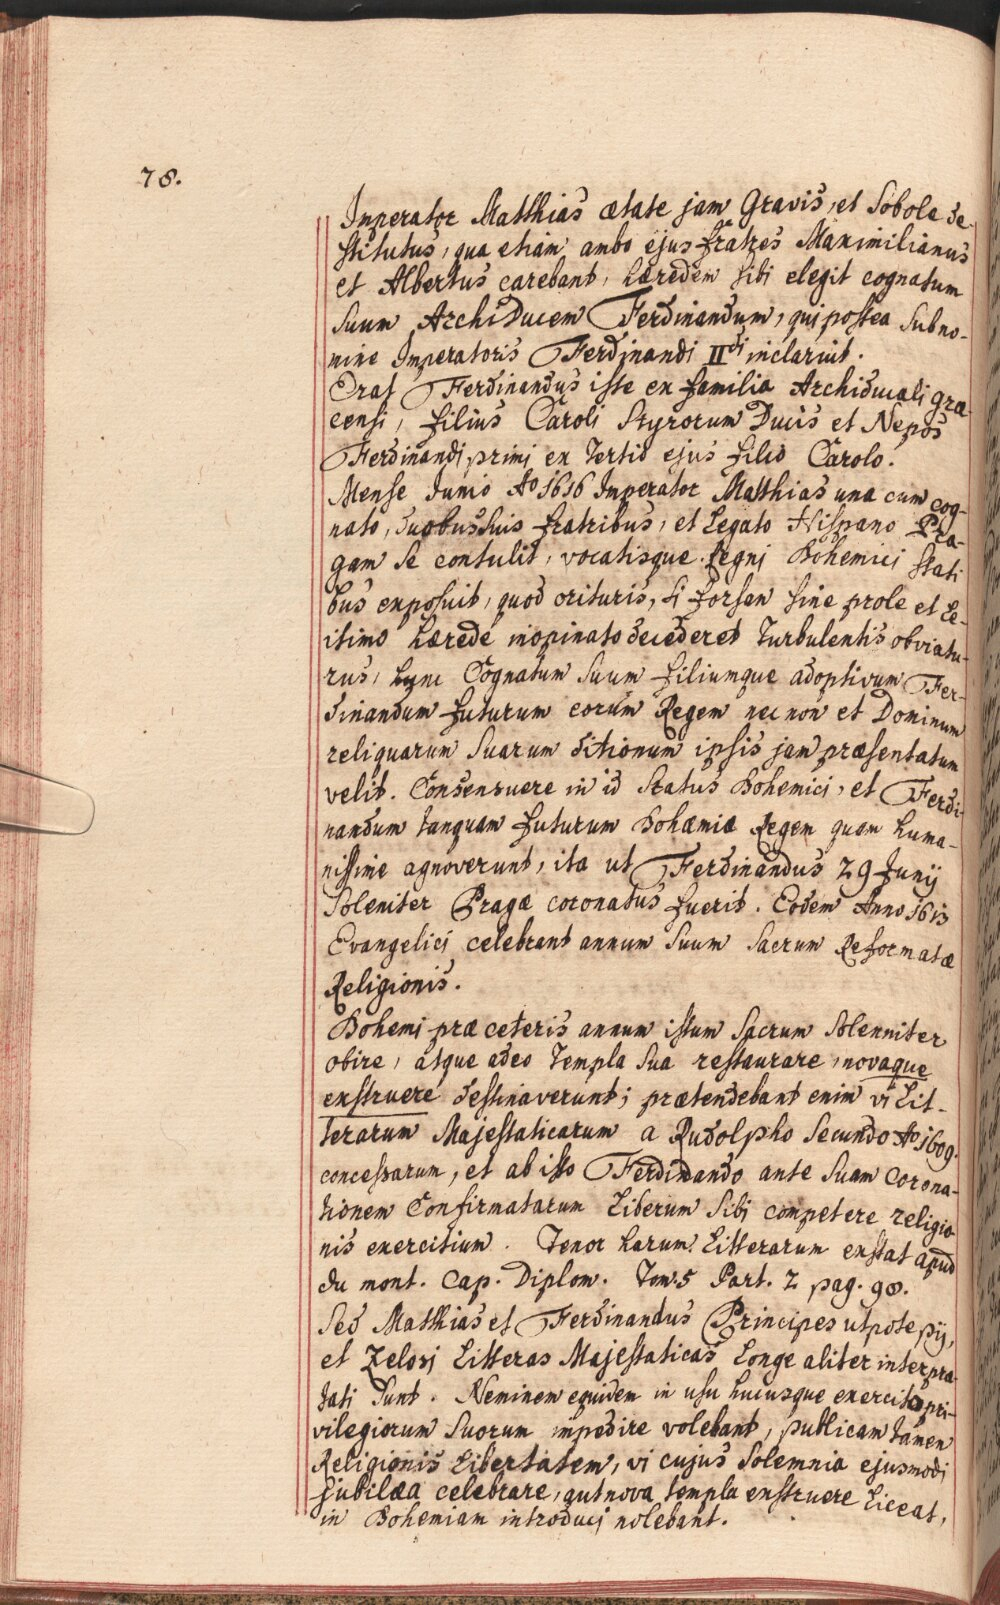 78.
Imperator Matthias ætate jam Gravis, et Sobole de
stitutus, qua etiam ambo ejus fratres Maximilianus
et Albertus carebant, hæredem sibi elegit cognatum
Suum ArchiDucem Ferdinandum, qui postea Subno-
mine Imperatoris Ferdinandi II.di inclaruit.
Erat Ferdinandus iste ex familia Archiducali græ-
censi, filius Caroli Styrorum Ducis et Nepos
Ferdinandi primi ex Tertio ejus filio Carolo.
Mense Junio Ao 1616 Imperator Matthias una cum cog-
nato, duobus suis fratribus, et Legato Hispano Pra-
gam se contulit, vocatisque Regni Bohemici stati
bus exposuit, quod orituris, si forsan sine prole et Le-
itimo hærede inopinato decederet Turbulentis obviatu-
rus, hunc Cognatum Suum filiumque adoptivum Fer-
dinandum futurum eorum Regem nec non et Dominum
reliquarum Suarum ditionum ipsis jam præsentatum
velit. Consensuere in id Status Bohemici, et Ferdi-
nandum tanquam futurum Bohæmiæ Regem quam huma-
nissime agnoverunt, ita ut Ferdinandus 29 Junij
Soleniter Pragæ coronatus fuerit. Eodem Anno 1613
Evangelici celebrant annum Suum Sacrum Reformatæ
Religionis.
Bohemi præ ceteris annum istum Sacrum Solenniter
obire, atque adeo Templa Sua restaurare, novaque
exstruere destinaverunt; prætendebant enim vi Lit-
terarum Majestaticarum a Rudolpho Secundo Ao 1609.
concessarum, et ab isto Ferdinando ante Suam Corona-
tionem Confirmatarum Liberum Sibi competere religio
nis exercitium. Tenor harum Litterarum exstat apud
du mont. Cap. Diplom. Tom. 5 Part. 2 pag. 98.
Sed Matthias et Ferdinandus Principes utpote pij,
et Zelosi Litteras Majestaticas Longe aliter interpra-
tati Sunt. Neminem equidem in usu hucusque exercito pri-
vilegiorum Suorum impedire volebant, publicam tamen
Religionis Libertatem, vi cujus Solemnia ejusmodi
jubilæa celebrare, aut nova templa exstruere Liceat,
in Bohemiam introduci nolebant.